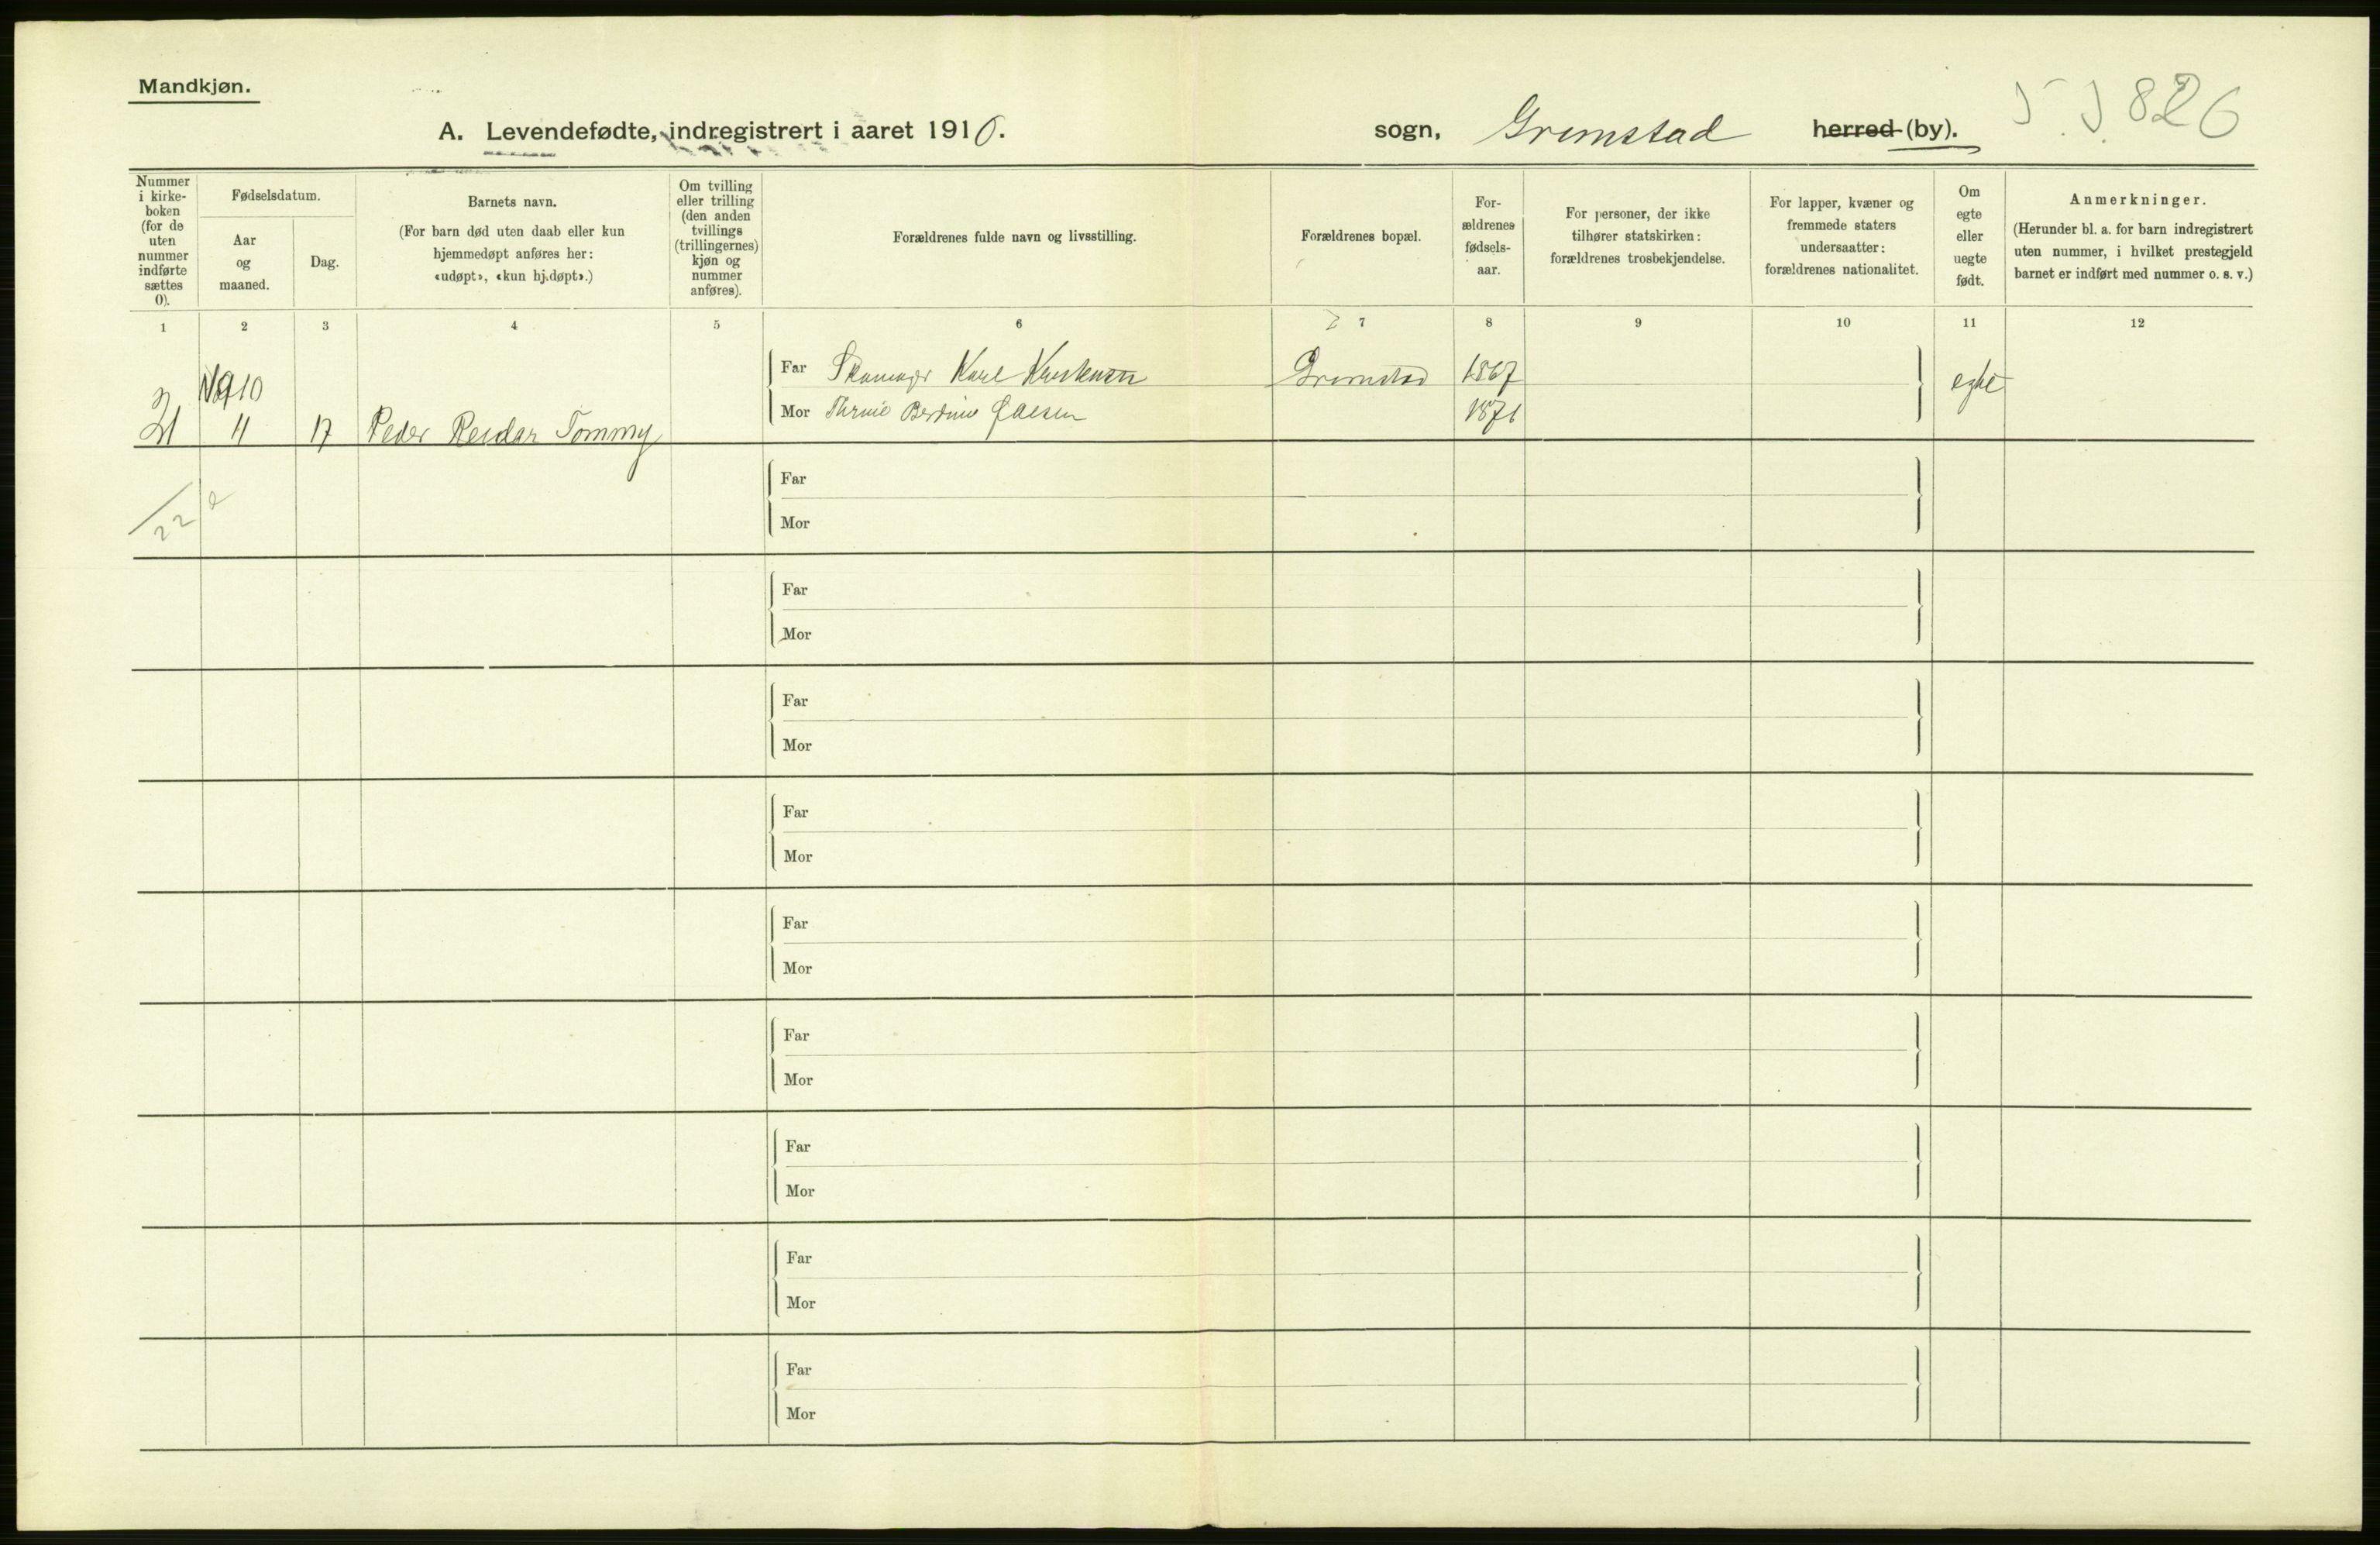 Mandkjøn.
A. Levendefødte, indregistrert i aaret 1910. sogn, Grimstad herred (by).
826
Nummer i kirke-boken (for de uten nummer indførte sættes 0).
Fødselsdatum.
Aar og maaned.
Dag.
Barnets navn.
(For barn død uten daab eller kun
hjemmedøpt anføres her:
«udøpt», «kun hj.døpt».)
Om tvilling
eller trilling
(den anden
tvillings
(trillingernes)
kjøn og
nummer
anføres).
Forældrenes fulde navn og livsstilling.
Forældrenes bopæl.
For-
ældrenes
fødsels-
aar.
For personer, der ikke
tilhører statskirken:
forældrenes trosbekjendelse.
For lapper, kvæner og
fremmede staters
undersaatter:
forældrenes nationalitet.
Om
egte
eller
uegte
født.
Anmerkninger.
(Herunder bl. a. for barn indregistrert
uten nummer, i hvilket prestegjeld
barnet er indført med nummer o. s. v.)
1 2 3 4 5 6 7 8 9 10 11 12
1910
Far Skomager Karl Grimstad 1867 egte
Mor Berdine 1871
21 11 17 Peder Reidar Tommy
22
Far
Mor
Far
Mor
Far
Mor
Far
Mor
Far
Mor
Far
Mor
Far
Mor
Far
Mor
Far
Mor